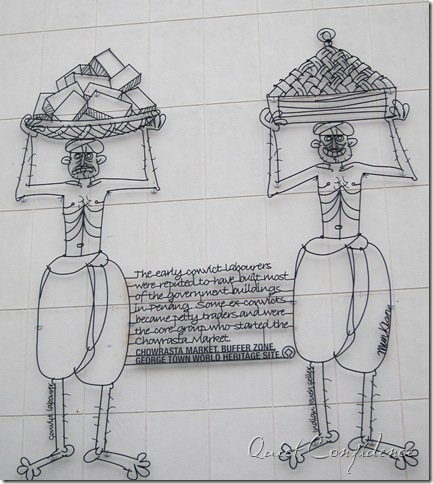 The early convict labourers
were reputed to have built most
of the government buildings
in Penang. Some ex-convicts
became petty traders and were
the core group who started the
Chowrasta Market.
CHOWRASTA MARKET, BUFFER ZONE,
GEORGE TOWN WORLD HERITAGE SITE
Convict labourer
Quiet Confidence